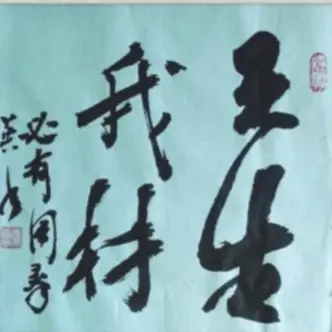 天生
我材
必有用